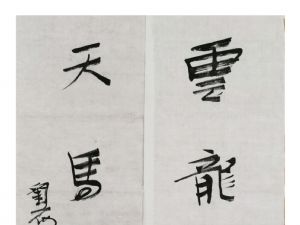 雲龍
天馬